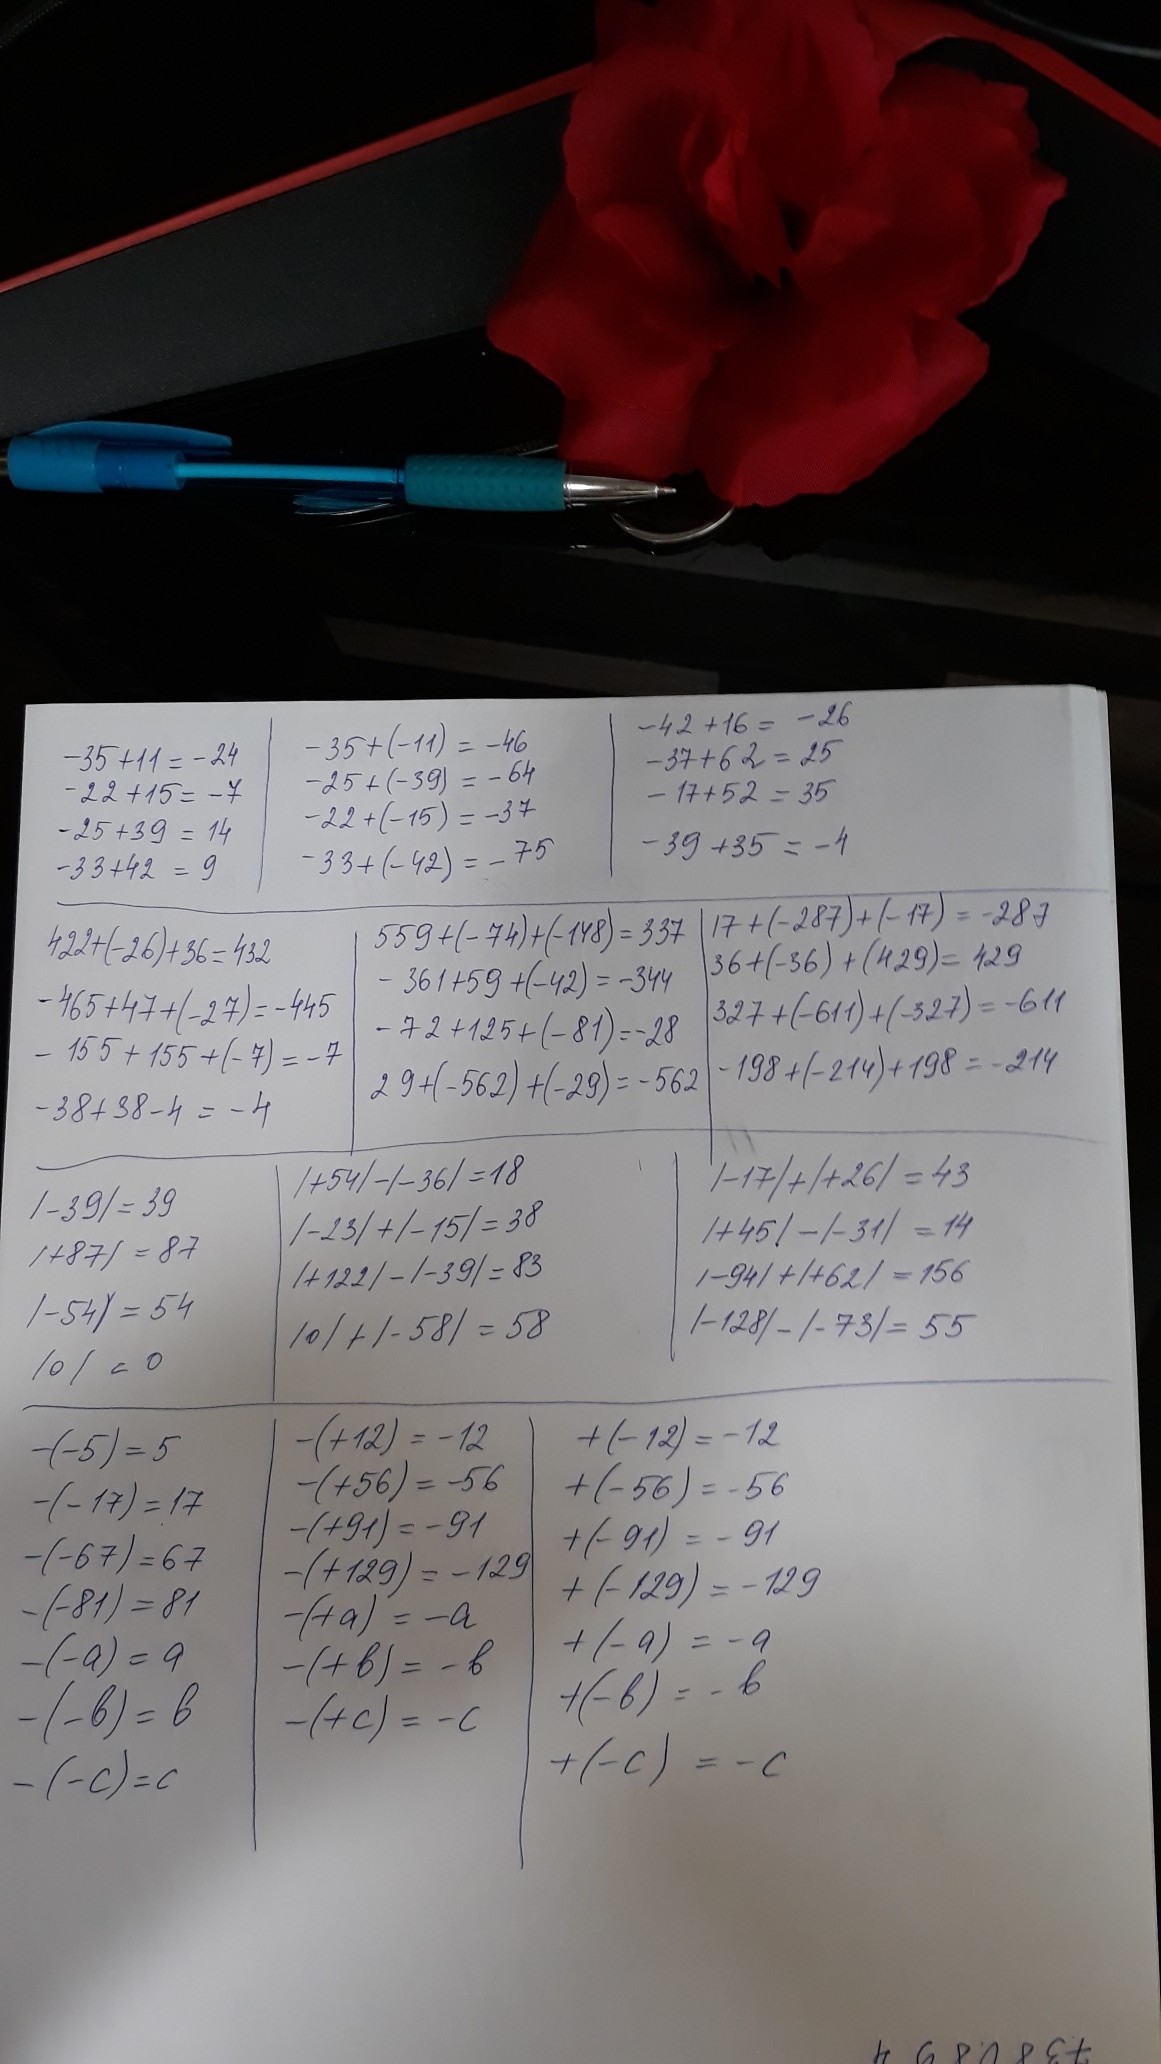 -35+11=-24
-22+15=-7
-25+39=14
-33+42=9
-35+(-11)=-46
-25+(-39)=-64
-22+(-15)=-37
-33+(-42)=-75
-42+16=-26
-37+62=25
-17+52=35
-39+35=-4
422+(-26)+36=432
-465+47+(-27)=-445
-155+155+(-7)=-7
-38+38-4=-4
559+(-74)+(-148)=337
-361+59+(-42)=-344
-72+125+(-81)=-28
29+(-562)+(-29)=-562
17+(-287)+(-17)=-287
36+(-36)+(429)=429
327+(-611)+(-327)=-611
-198+(-214)+198=-214
|-39|=39
|+87|=87
|-54|=54
|0|=0
|+54|-|-36|=18
|-23|+|-15|=38
|+122|-|-39|=83
|0|+|-58|=58
|-17|+|+26|=43
|+45|-|-31|=14
|-94|+|+62|=156
|-128|-|-73|=55
-(-5)=5
-(-17)=17
-(-67)=67
-(-81)=81
-(-a)=a
-(-b)=b
-(-c)=c
-(+12)=-12
-(+56)=-56
-(+91)=-91
-(+129)=-129
-(+a)=-a
-(+b)=-b
-(+c)=-c
+(-12)=-12
+(-56)=-56
+(-91)=-91
+(-129)=-129
+(-a)=-a
+(-b)=-b
+(-c)=-c